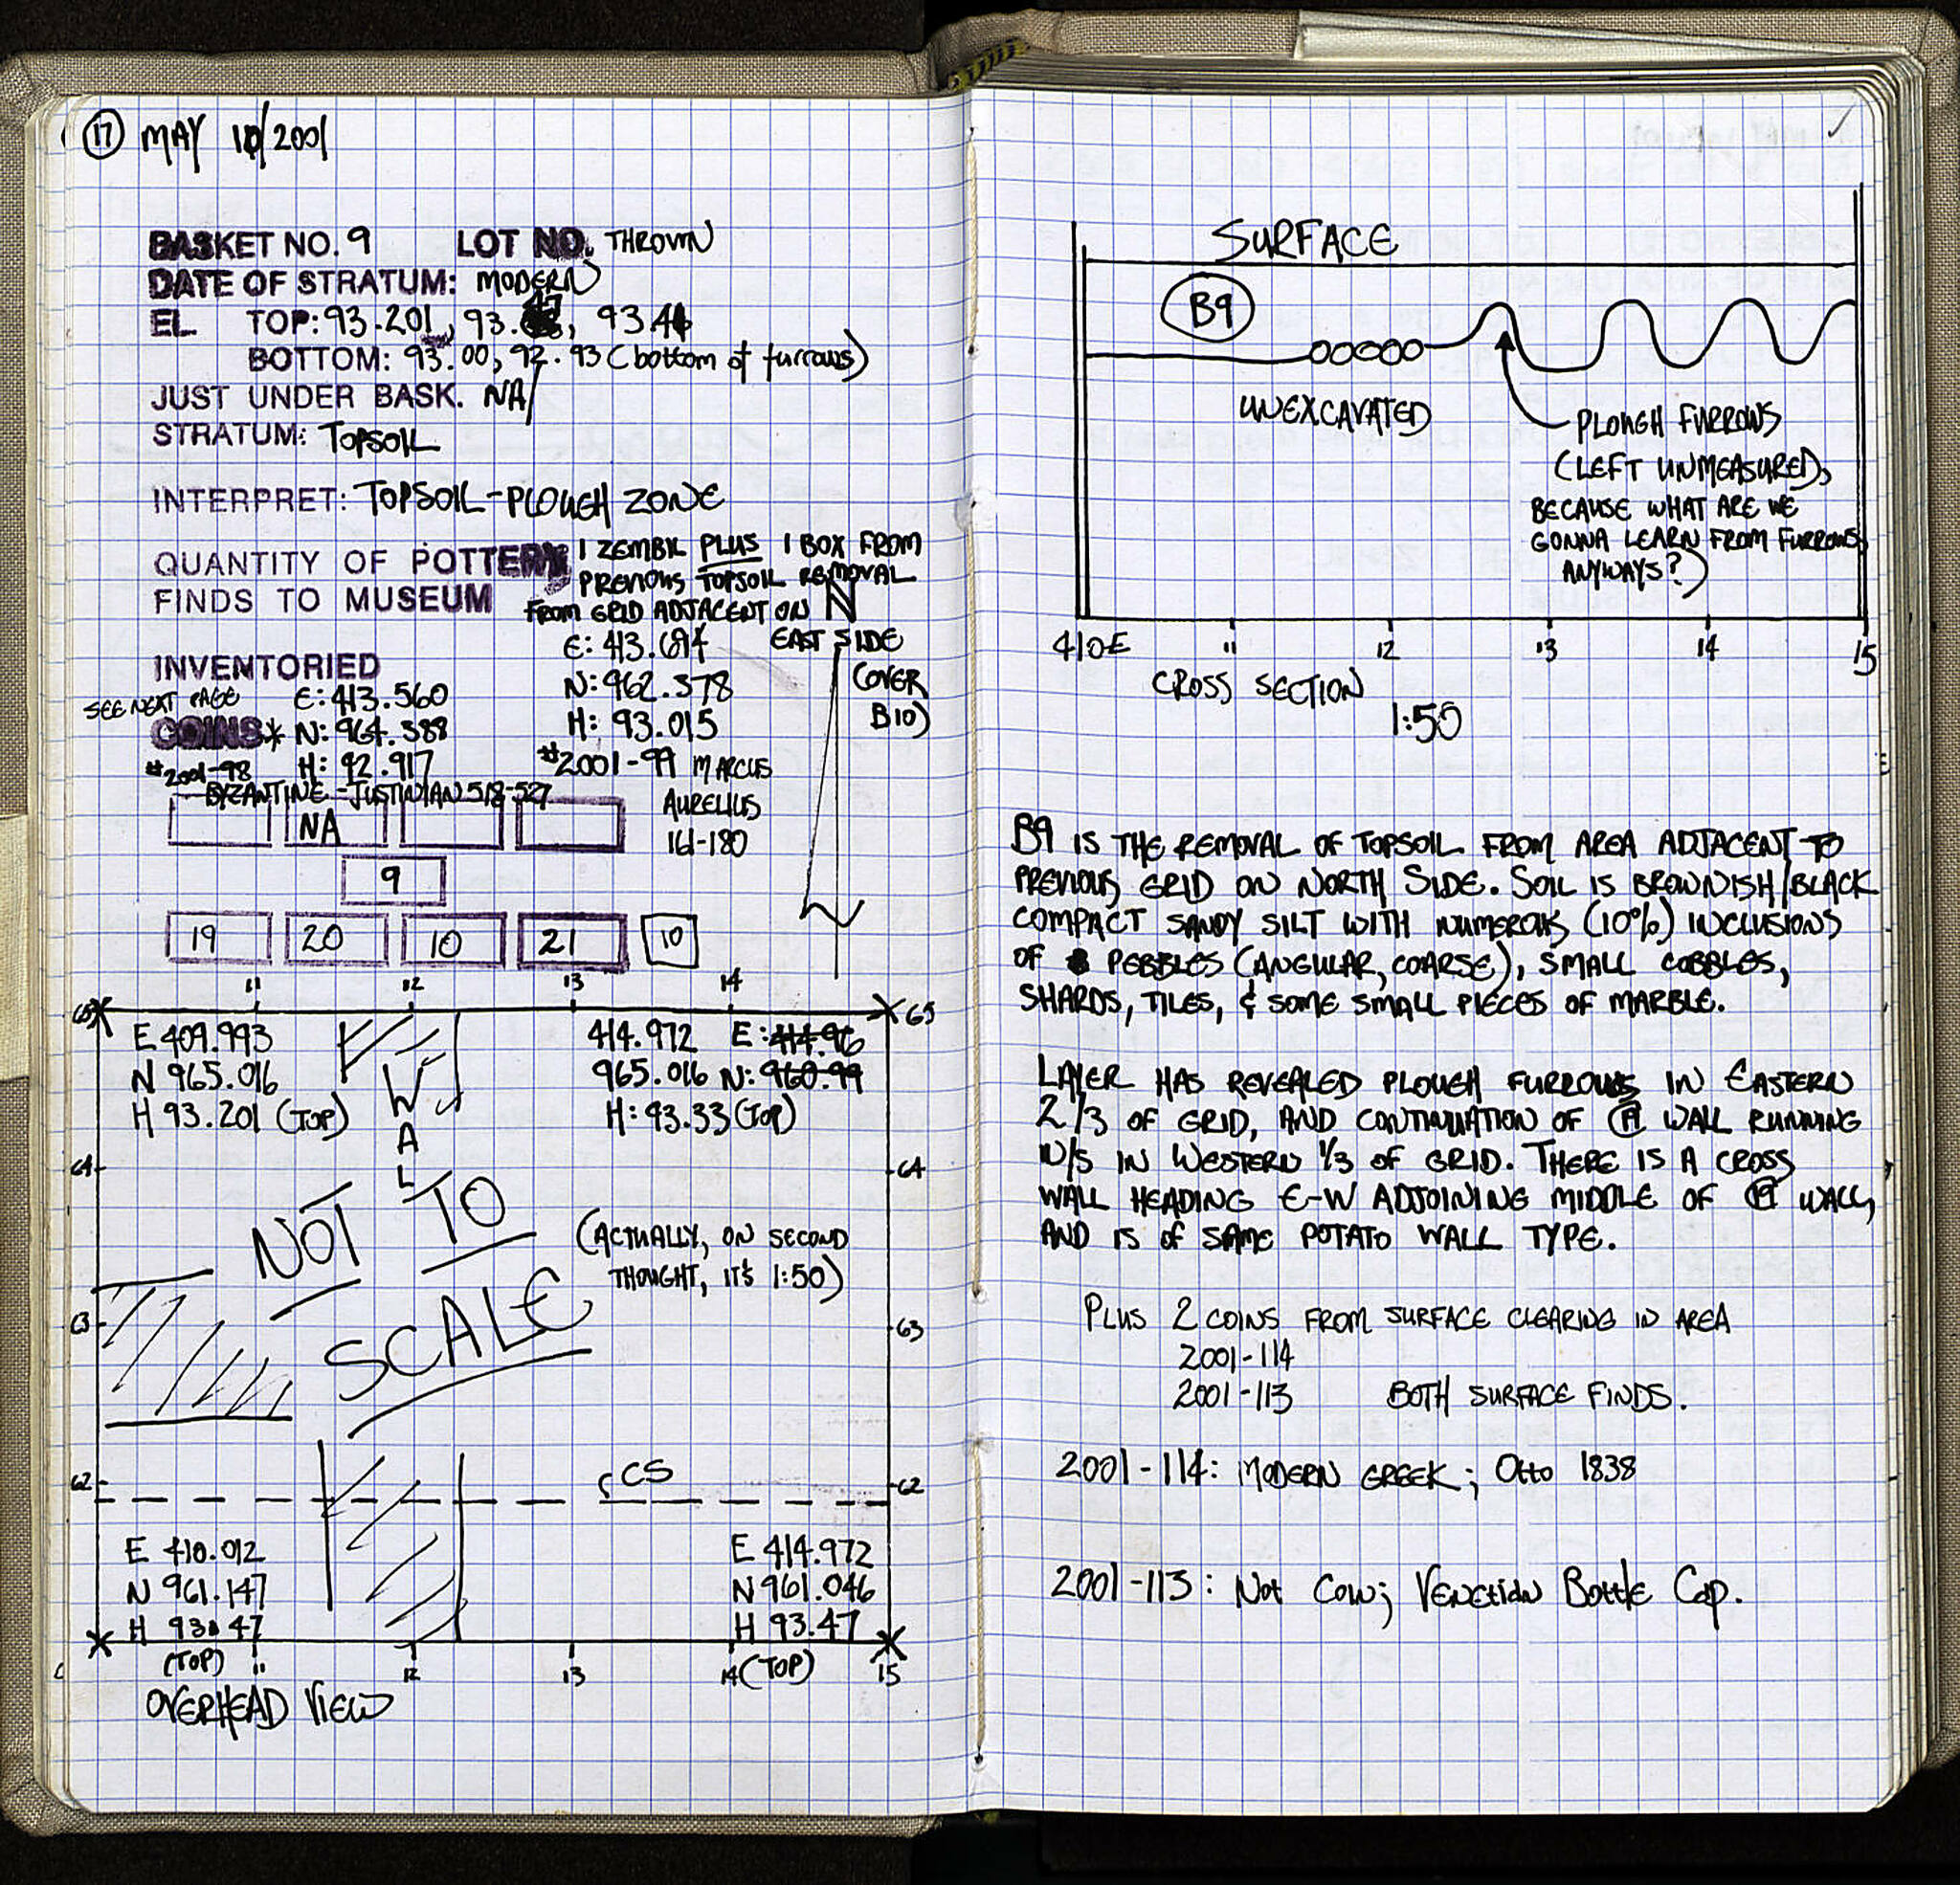 17 MAY 10/2001
BASKET NO. 9 LOT NO. THROWN
DATE OF STRATUM: MODERN
EL. TOP: 93.201, 93.47, 93.4
BOTTOM: 93.00, 92.93 (bottom of furrows)
JUST UNDER BASK. NA/
STRATUM: TOPSOIL
INTERPRET: TOPSOIL-PLOUGH ZONE
QUANTITY OF POTTERY 1 ZEMBIL PLUS 1 BOX FROM
PREVIOUS TOPSOIL REMOVAL
FROM GRID ADJACENT ON N
FINDS TO MUSEUM
EAST SIDE
(COVER
B10)
INVENTORIED
SEE NEXT PAGE
COINS*
E: 413.560
N: 964.388
H: 92.917
#2001-98
BYZANTINE-JUSTINIAN 518-527
E: 413.694
N: 962.378
H: 93.015
#2001-99 MARCUS
AURELIUS
161-180
NA
9
19 20 10 21 10
11 12 13 14
65 65
E 409.993
N 965.016
H 93.201 (TOP)
WALL
414.972 E: 414.96
965.016 N: 960.99
H: 93.33 (TOP)
64 64
NOT TO
SCALE
(ACTUALLY, ON SECOND
THOUGHT, IT'S 1:50)
63 63
CS
62 62
E 410.012
N 961.147
H 93.47
(TOP)
E 414.972
N 961.046
H 93.47
(TOP)
11 12 13 14 15
OVERHEAD VIEW
SURFACE
B9
UNEXCAVATED
PLOUGH FURROWS
(LEFT UNMEASURED,
BECAUSE WHAT ARE WE
GONNA LEARN FROM FURROWS
ANYWAYS?)
410E 11 12 13 14 15
CROSS SECTION
1:50
B9 IS THE REMOVAL OF TOPSOIL FROM AREA ADJACENT TO
PREVIOUS GRID ON NORTH SIDE. SOIL IS BROWNISH/BLACK
COMPACT SANDY SILT WITH NUMEROUS (10%) INCLUSIONS
OF PEBBLES (ANGULAR, COARSE), SMALL COBBLES,
SHARDS, TILES, & SOME SMALL PIECES OF MARBLE.
LAYER HAS REVEALED PLOUGH FURROWS IN EASTERN
2/3 OF GRID, AND CONTINUATION OF A WALL RUNNING
N/S IN WESTERN 1/3 OF GRID. THERE IS A CROSS
WALL HEADING E-W ADJOINING MIDDLE OF A WALL,
AND IS OF SAME POTATO WALL TYPE.
PLUS 2 COINS FROM SURFACE CLEARING IN AREA
2001-114
2001-113 BOTH SURFACE FINDS.
2001-114: MODERN GREEK; Otto 1838
2001-113: Not Coin; Venetian Bottle Cap.